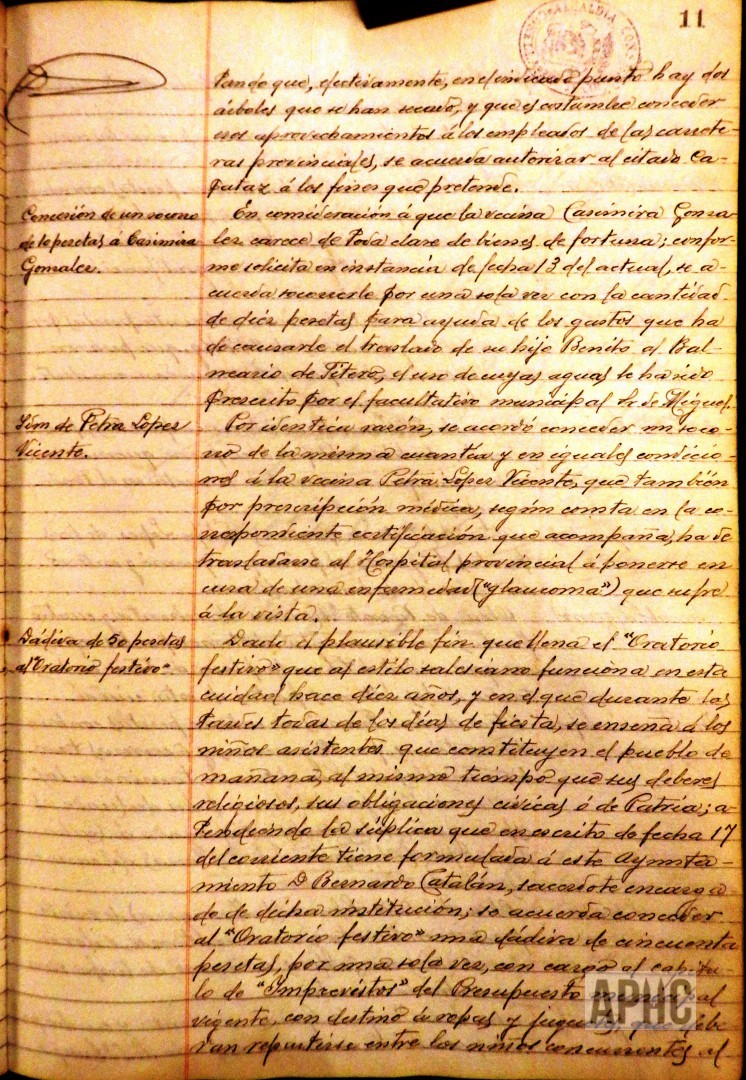 11
ALCALDIA CON
tando que, efectivamente, en el indicado punto hay dos
árboles que se han secado, y que es costumbre conceder
esos aprovechamientos á los empleados de las carrete-
ras provinciales, se acuerda autorizar al citado Ca-
pataz á los fines que pretende.
Concesión de un socorro
de 10 pesetas á Casimira
Gonzalez.
En consideración á que la vecina Casimira Gonza-
lez carece de toda clase de bienes de fortuna; confor-
me solicita en instancia de fecha 13 del actual, se a-
cuerda socorrerle por una sola vez con la cantidad
de diez pesetas para ayuda de los gastos que ha
de causarle el traslado de su hijo Benito al Bal-
neario de Fitero, el uso de cuyas aguas le ha sido
prescrito por el facultativo municipal Sr. de Miguel.
Idm de Petra Lopez
Vicente.
Por identica razón, se acordó conceder un soco-
rro de la misma cuantía y en iguales condicio-
nes á la vecina Petra Lopez Vicente, que también
por prescripción médica, según consta en la co-
rrespondiente certificación que acompaña, ha de
trasladarse al Hospital provincial á ponerse en
cura de una enfermedad ("glaucoma") que sufre
á la vista.
Dádiva de 50 pesetas
al "Oratorio festivo"
Dado el plausible fin que llena el "Oratorio
festivo" que al estilo salesiano funciona en esta
ciudad hace diez años, y en el que durante las
tardes todas de los días de fiesta, se enseña á los
niños asistentes que constituyen el pueblo de
mañana, al mismo tiempo que sus deberes
religiosos, sus obligaciones civicas ó de Patria; a-
tendiendo la súplica que en escrito de fecha 17
del corriente tiene formulada á este Ayunta-
miento D. Bernardo Catalán, sacerdote encarga-
do de dicha institución; se acuerda conceder
al "Oratorio festivo" una dádiva de cincuenta
pesetas, por una sola vez, con cargo al capitu-
lo de "Imprevistos" del Presupuesto municipal
vigente, con destino á ropas y juguetes que debe-
ran repartirse entre los niños concurrentes al
APHC